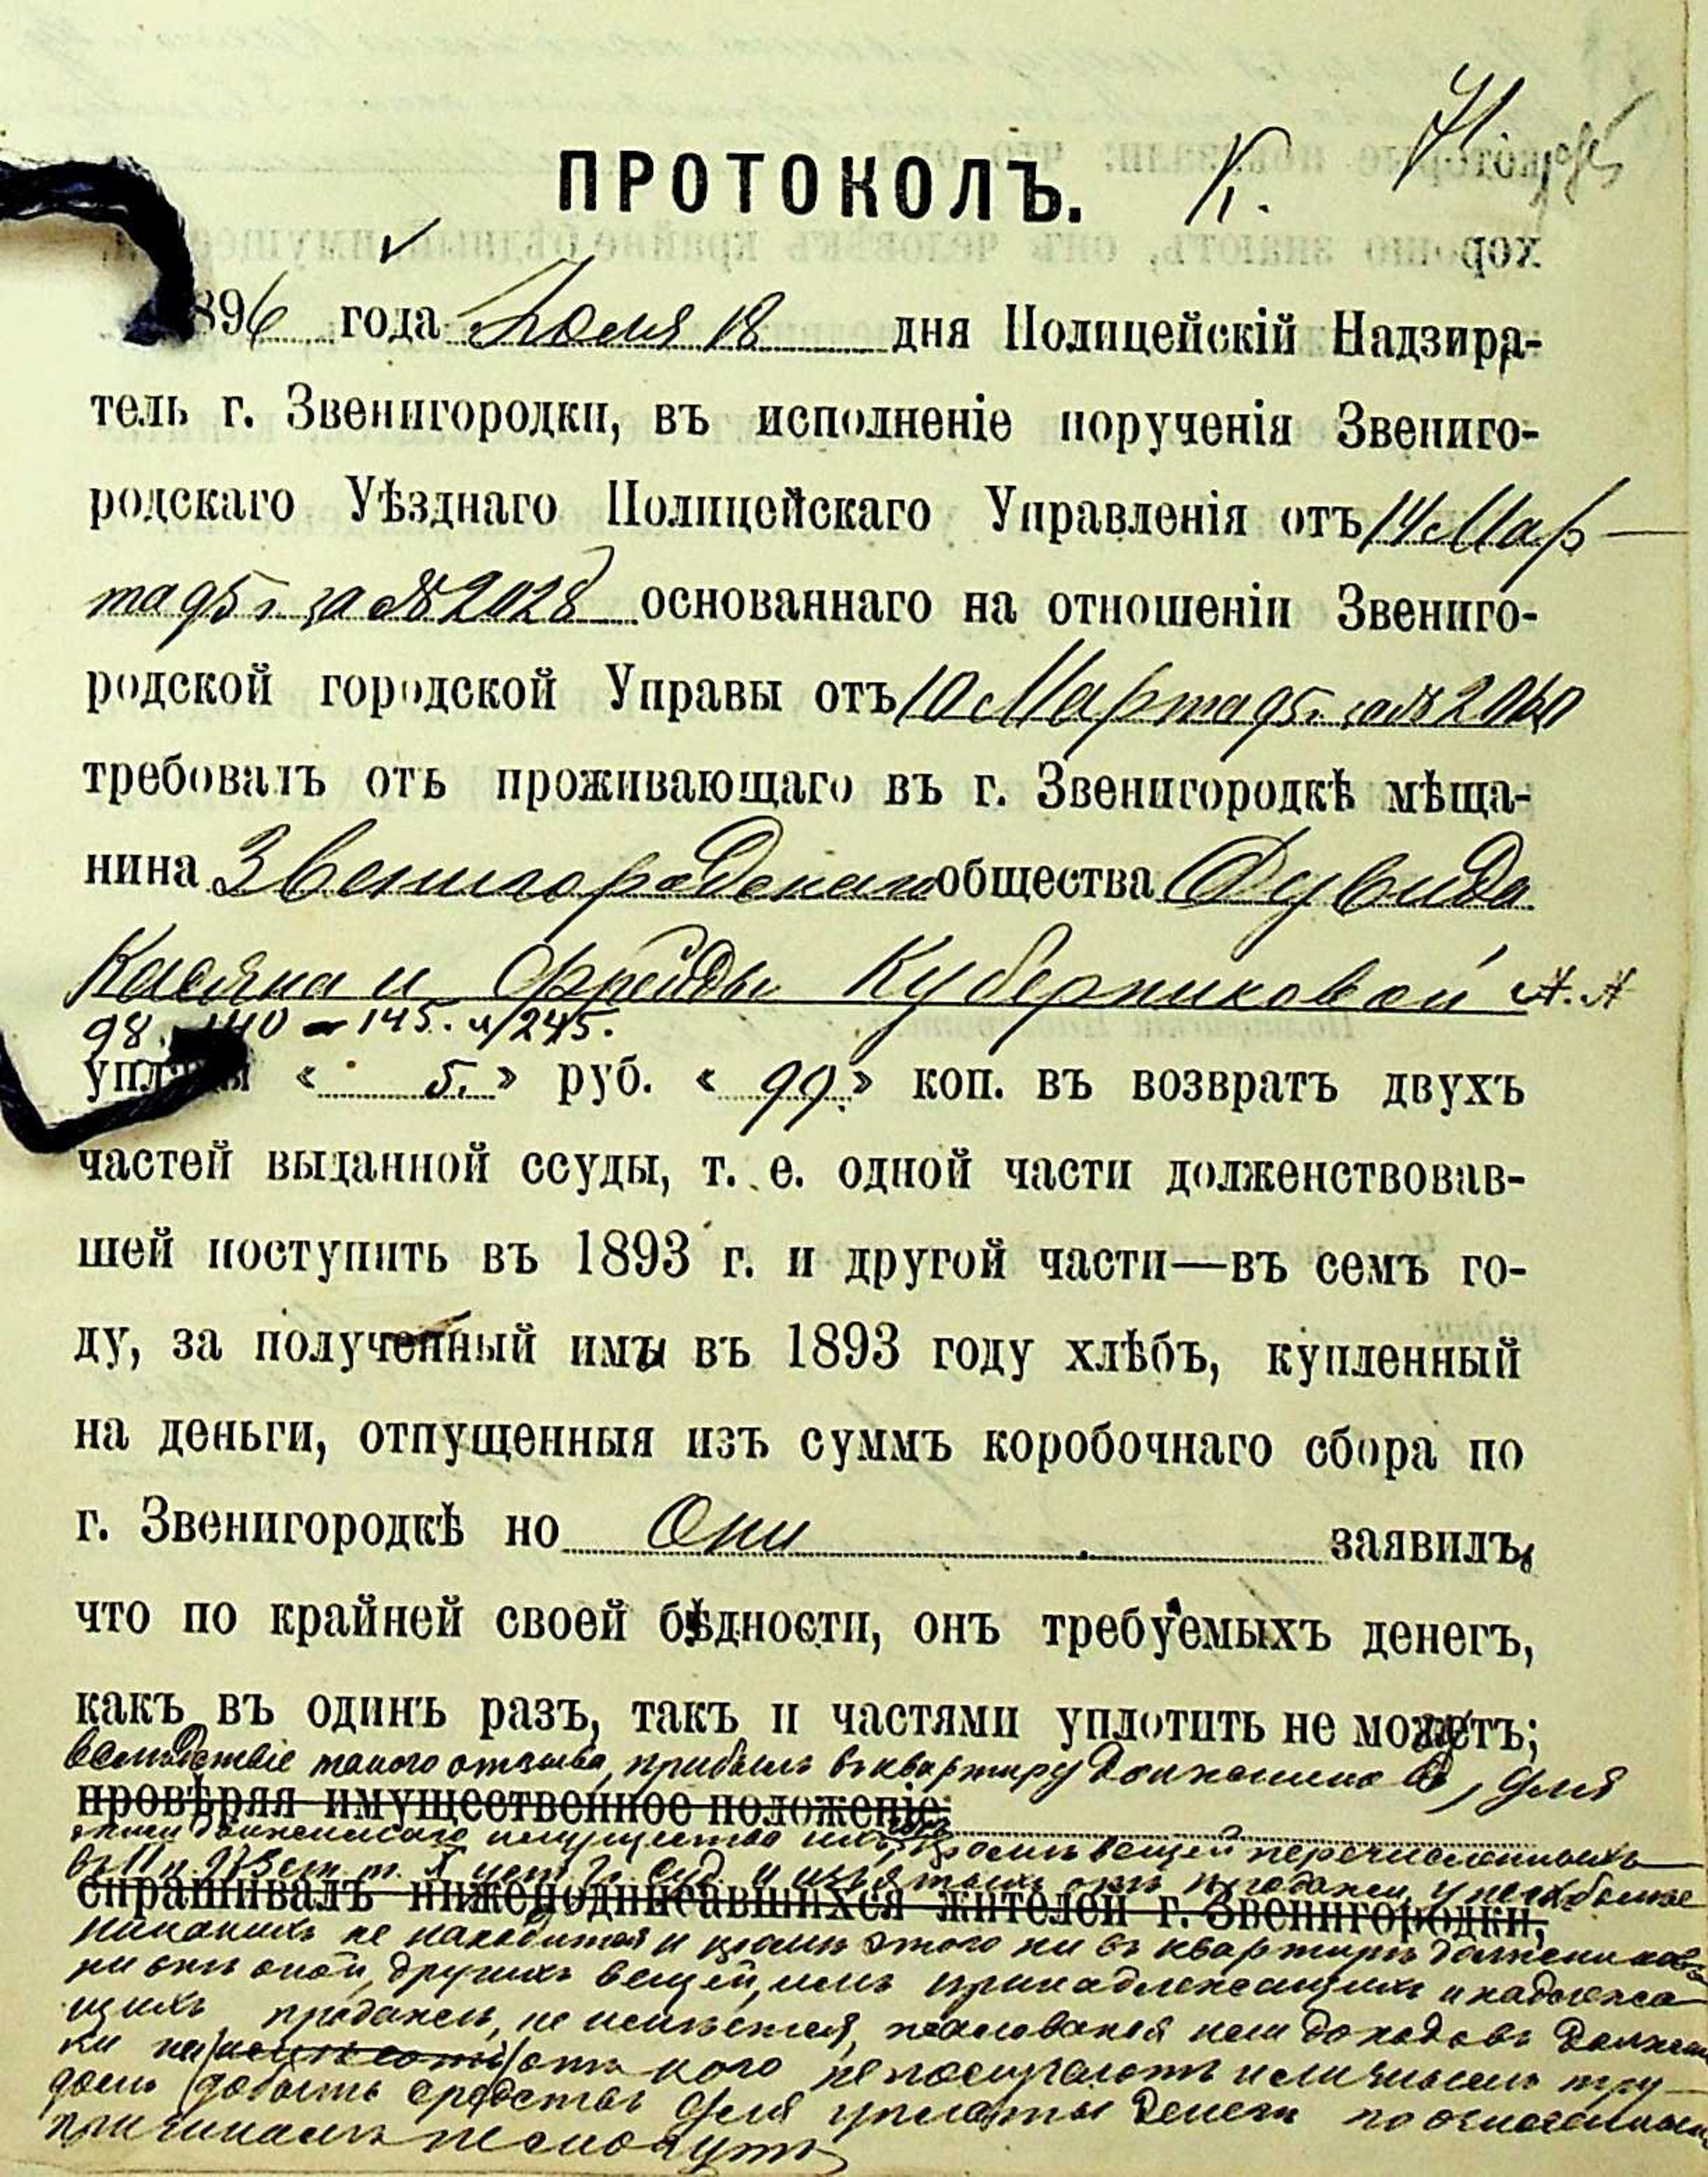 71.
ПРОТОКОЛЪ. К.
1896 года Июля 18 дня Полицейскій Надзира-
тель г. Звенигородки, въ исполненіе порученія Звениго-
родскаго Уѣзднаго Полицейскаго Управленія отъ 14 Мар-
та 95 г. за № 2028 основаннаго на отношеніи Звениго-
родской городской Управы отъ 10 Марта 95 г. за №
требовалъ отъ проживающаго въ г. Звенигородкѣ мѣща-
нина Звенигородскаго общества Дувида
Касяна и Фрейды Куберниковой
98. 140 145. и 245.
уплаты « 5. » руб. « 99. » коп. въ возвратъ двухъ
частей выданной ссуды, т. е. одной части долженствовав-
шей поступить въ 1893 г. и другой части—въ семъ го-
ду, за полученный имы въ 1893 году хлѣбъ, купленный
на деньги, отпущенныя изъ суммъ коробочнаго сбора по
г. Звенигородкѣ но Они заявилъ,
что по крайней своей бѣдности, онъ требуемыхъ денегъ,
какъ въ одинъ разъ, такъ и частями уплотить не могутъ;
вслѣдствіе такого отзыва, прибылъ въ квартиру должниковъ, для
провѣряя имущественное положеніе
описи движимаго имущества ихъ, кромѣ вещей перечисленныхъ
въ II п. 973 ст. т. X уст. гр. суд. и изъятыхъ отъ продажи, у нихъ болѣе
спрашивалъ нижеподписавшихся жителей г. Звенигородки,
никакихъ не находится и кромѣ этого ни въ квартирѣ должниковъ
ни внѣ оной, другихъ вещей, имъ принадлежащихъ и подлежа-
щихъ продажѣ, не имѣется, жалованія или доходовъ должни-
ки ни отъ кого не получаютъ и личнымъ тру-
домъ добыть средствъ для уплаты денегъ по
причинамъ не могутъ